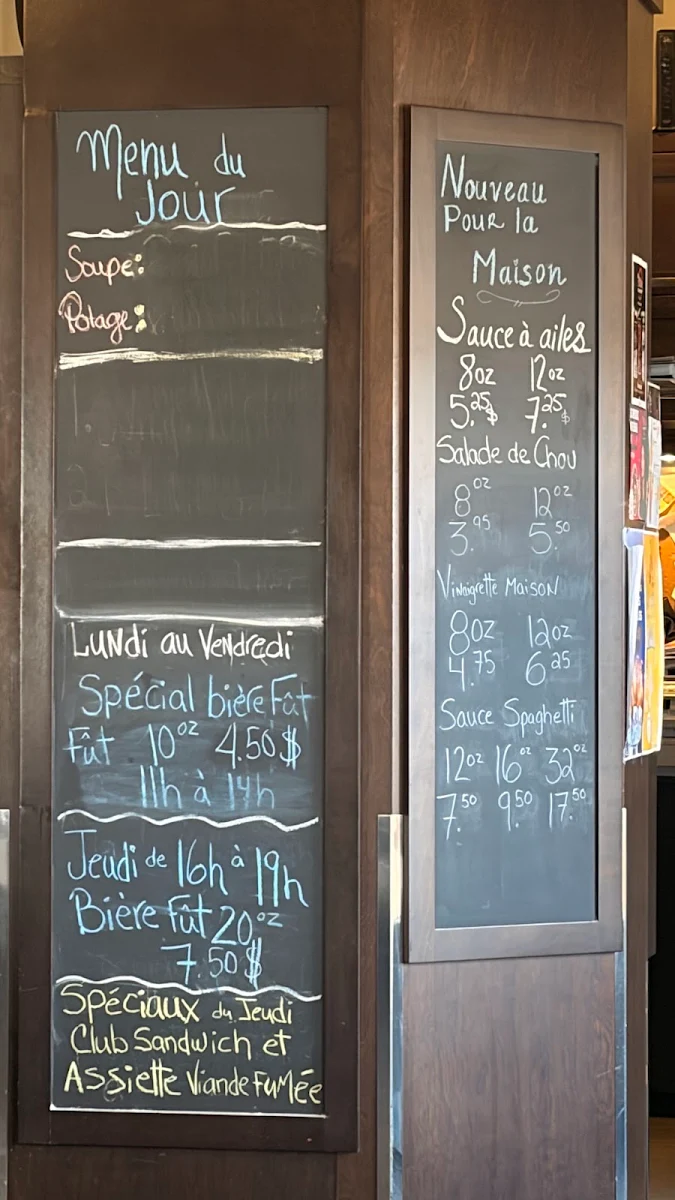 Menu du
Jour
Soupe:
Potage:
Lundi au Vendredi
Spécial bière Fût
Fût 10oz 4.50$
11h à 14h
Jeudi de 16h à 19h
Bière Fût 20oz
7.50$
Spéciaux du Jeudi
Club Sandwich et
Assiette Viande Fumée
Nouveau
Pour la
Maison
Sauce à ailes
8oz 12oz
5.25$ 7.25$
Salade de Chou
8oz 12oz
3.95 5.50
Vinaigrette Maison
8oz 12oz
4.75 6.25
Sauce Spaghetti
12oz 16oz 32oz
7.50 9.50 17.50